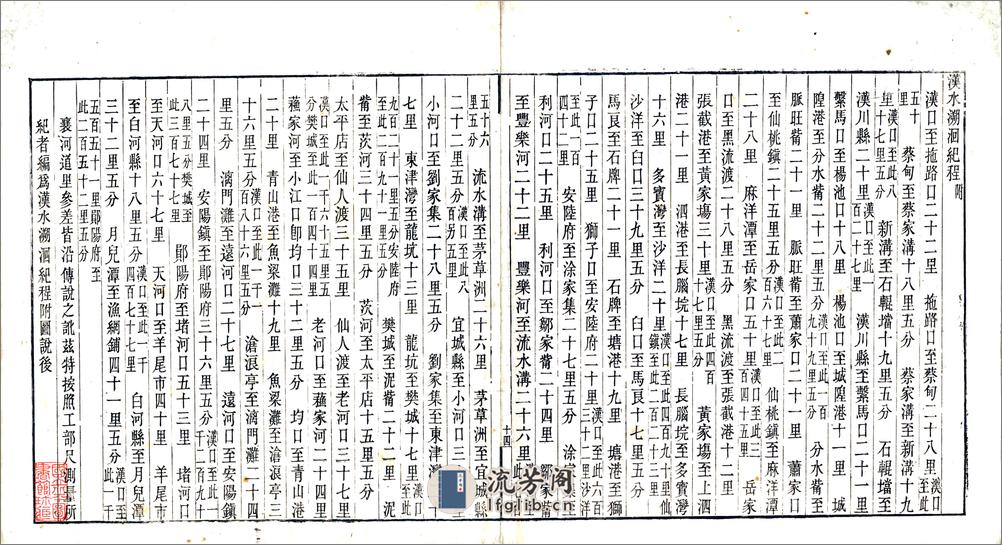 漢水溯洄紀程附
漢口至拖路口二十二里 拖路口至蔡甸二十八里漢口至此
五十里 蔡甸至蔡家溝十八里五分 蔡家溝至新溝十九
里漢口至此八十七里五分 新溝至石輥壋十九里五分 石輥壋至
漢川縣二十里漢口至此一百二十七里 漢川縣至繫馬口二十一里
繫馬口至楊池口十七里 楊池口至城隍港十一里 城
隍港至分水觜二十二里漢口至此一百九十九里五分 分水觜至
脈旺觜二十里 脈旺觜至蕭家口二十一里 蕭家口
至仙桃鎮二十五里五分漢口至此二百六十七里 仙桃鎮至麻洋潭
二十八里 麻洋潭至岳家口四十五里五分 岳家
口至黑流渡二十五里 黑流渡至張截港十二里
張截港至黃家塲三十里 黃家塲至上泗
港二十一里 泗港至長腦垸十七里 長腦垸至多寶灣
十六里 多寶灣至沙洋二十三里
沙洋至臼口三十九里五分 臼口至馬良十七里五分
馬良至石牌二十一里 石牌至塘港十九里 塘港至獅
子口二十五里 獅子口至安陸府十三里五分
安陸府至涂家集二十七里五分 涂家
利河口二十五里五分 利河口至鄒家觜二十四里 鄒家觜
至豐樂河二十二里 豐樂河至流水溝二十六里
十四
五十六里五分 流水溝至茅草洲二十六里 茅草洲至宜城縣
二十二里五分漢口至此八百另五里五分 宜城縣至小河口三
小河口至劉家集二十八里五分 劉家集至東津灣
七里 東津灣至龍坑十七里 龍坑至樊城十七里漢口至此
九百二十一里五分安陸府至此二百九十一里五分 樊城至泥觜二十二里 泥
觜至茨河三十四里五分 茨河至太平店十五里五分
太平店至仙人渡三十五里 仙人渡至老河口三十七里
漢口至此一千六十五里五分樊城至此一百四十四里 老河口至蘓家河二十里
蘓家河至小江口卽均口三十二里五分 均口至青山港
二十里 青山港至魚翠灘十九里 魚翠灘至滄浪亭三
十六里五分漢口至此一千一百六十五里五分 滄浪亭至漓門灘二十四
里五分 漓門灘至遠河口二十七里 遠河口至安陽鎮
二十四里 安陽鎮至鄖陽府三十六里五分漢口至此一千二百九十
八里五分樊城至此三百七十七里 鄖陽府至堵河口五十三里 堵河口
至天河口六十七里 天河口至羊尾市四十里 羊尾市
至白河縣十八里五分漢口至此一千四百七十七里 白河縣至月兒潭
三十二里五分 月兒潭至漁網鋪四十一里五分漢口至此一千
五百五十一里鄖陽府至此二百五十二里五分
襄河道里參差皆沿傳說之訛茲特按照工部尺測量所
紀者編爲漢水溯洄紀程附圖說後
流芳阁
lfglib.cn